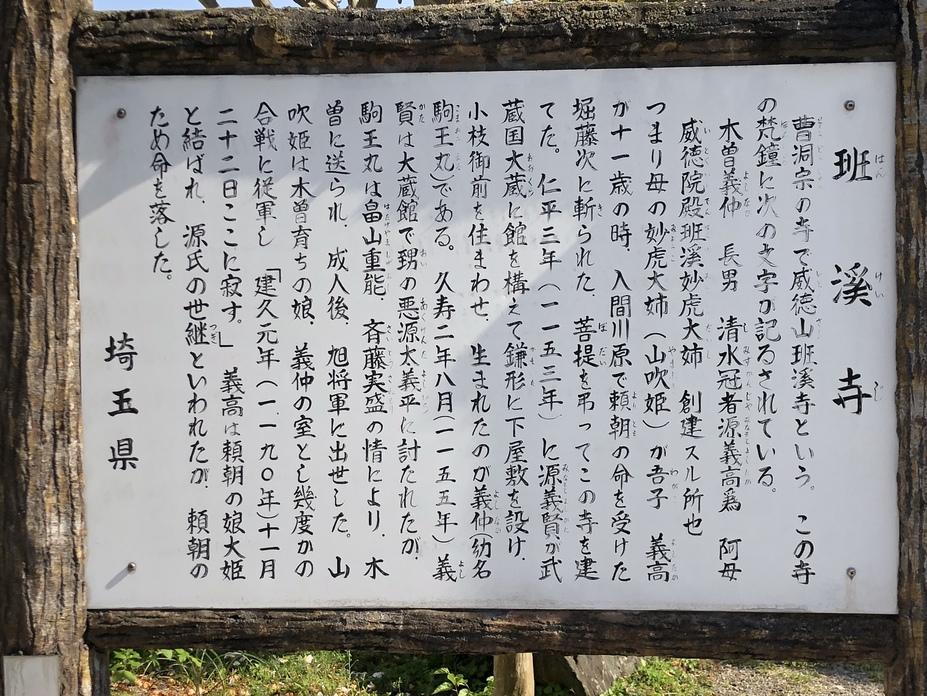 班溪寺
曹洞宗の寺で威徳山班溪寺という。この寺
の梵鐘に次の文字が記るされている。
木曽義仲 長男 清水冠者源義高爲 阿母
威徳院殿班溪妙虎大姉 創建スル所也
つまり母の妙虎大姉(山吹姫)が吾子 義高
が十一歳の時、入間川原で頼朝の命を受けた
堀藤次に斬られた、菩提を弔ってこの寺を建
てた。仁平三年(一一五三年)に源義賢が武
蔵国大蔵に館を構えて鎌形に下屋敷を設け、
小枝御前を住まわせ、生まれたのが義仲(幼名
駒王丸)である。久寿二年八月(一一五五年)義
賢は大蔵館で甥の悪源太義平に討たれたが、
駒王丸は畠山重能、斉藤実盛の情により、木
曽に送られ、成人後、旭将軍に出世した。山
吹姫は木曽育ちの娘、義仲の室とし幾度かの
合戦に従軍し 「建久元年(一一九〇年)十一月
二十二日ここに寂す。」 義高は頼朝の娘大姫
と結ばれ、源氏の世継といわれたが、頼朝の
ため命を落した。
埼玉県